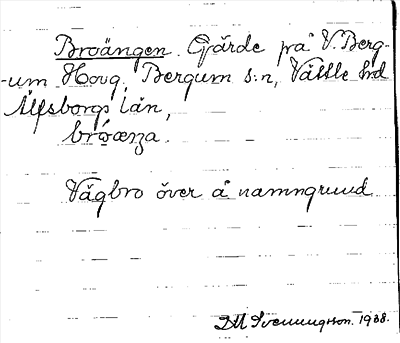 Broängen. Gärde på V. Berg-
-um Hovg. Bergum s:n, Vättle hd
Älfsborgs län,
Vägbro över å namngrund
Svenningsson. 1938.